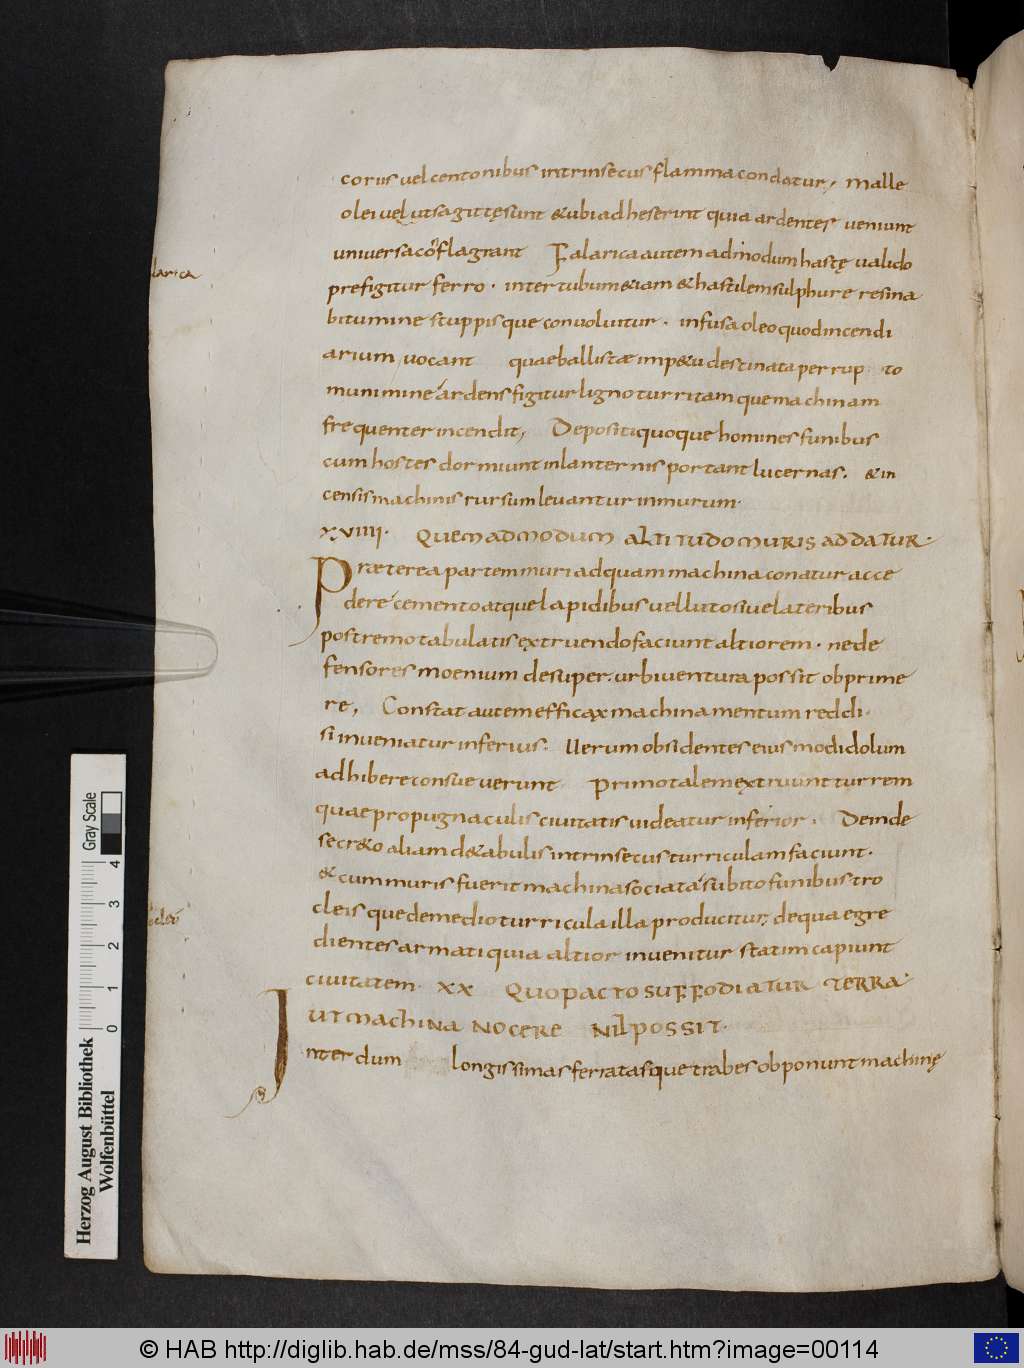 coriis vel centonibus intrinsecus flamma condatur, malle
olei velut sagittę sunt & ubi adheserint quia ardentes veniunt
universa cōflagrant Falarica autem ad modum hastę valido
larica
prefigitur ferro. inter tubum &iam & hastilem sulphure resina
bitumine stuppisque convolvitur. infusa oleo quod incendi
arium vocant quae ballistæ imp&u destinata perrup to
munimine ardens figitur ligno turritamque machinam
frequenter incendit, Depositi quoque homines funibus
cum hostes dormiunt in lanternis portant lucernas. & in
censis machinis rursum levantur in murum.
XVIIII. QUEMADMODUM ALTITUDO MURIS ADDATUR.
Præterea partem muri ad quam machina conatur acce
dere cemento atque lapidibus vel luto sive lateribus
postremo tabulatis extruendo faciunt altiorem. ne de
fensores moenium desuper urbi ventura possit obprime
re, Constat autem efficax machinamentum reddi.
si inveniatur inferius. Uerum obsidentes eiusmodi dolum
adhibere consueverunt Primo talem extruunt turrem
quae propugnaculis civitatis videatur inferior. Deinde
secr&o aliam de tabulis intrinsecus turriculam faciunt.
& cum muris fuerit machina sociata subito funibus tro
cleis que de medio turricula illa producitur, de qua egre
dientes armati quia altior invenitur statim capiunt
civitatem. XX QUO PACTO SUFFODIATUR TERRA
UT MACHINA NOCERE NIL POSSIT.
Interdum longissimas ferratasque trabes obponunt machinę
Gray Scale
0 1 2 3 4
Herzog August Bibliothek
Wolfenbüttel
© HAB http://diglib.hab.de/mss/84-gud-lat/start.htm?image=00114